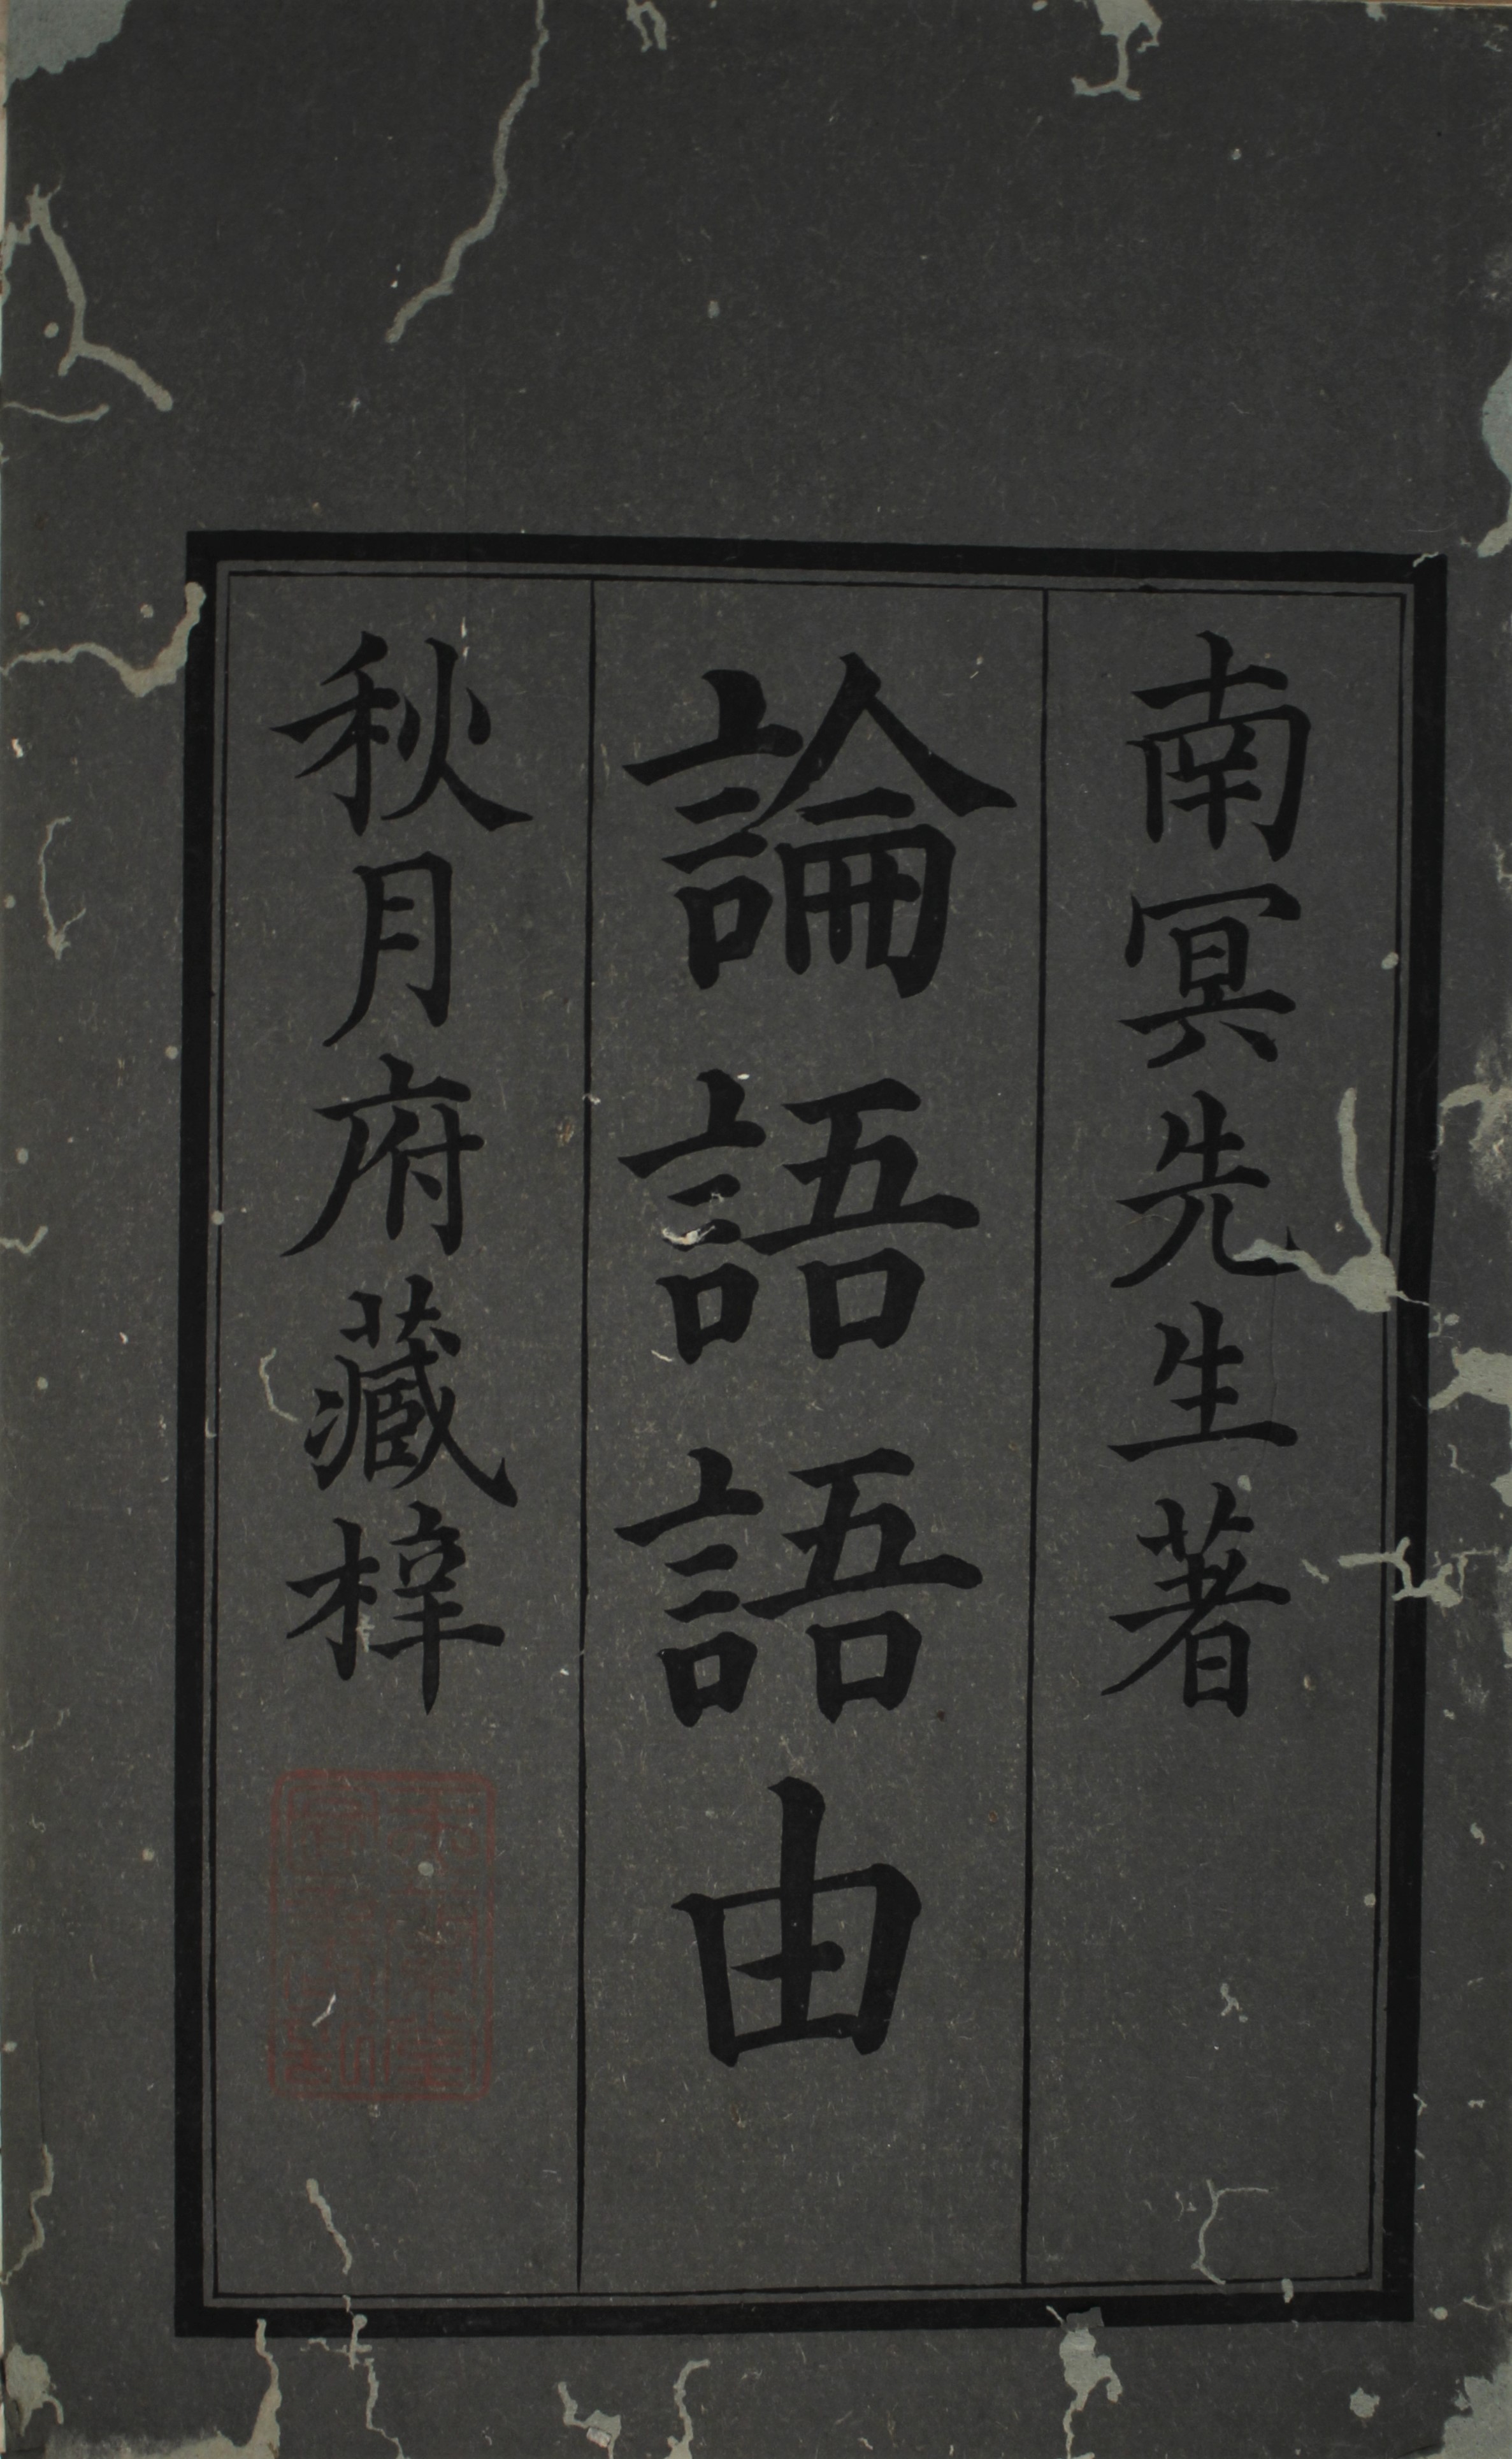 南冥先生著
論語語由
秋月府藏梓